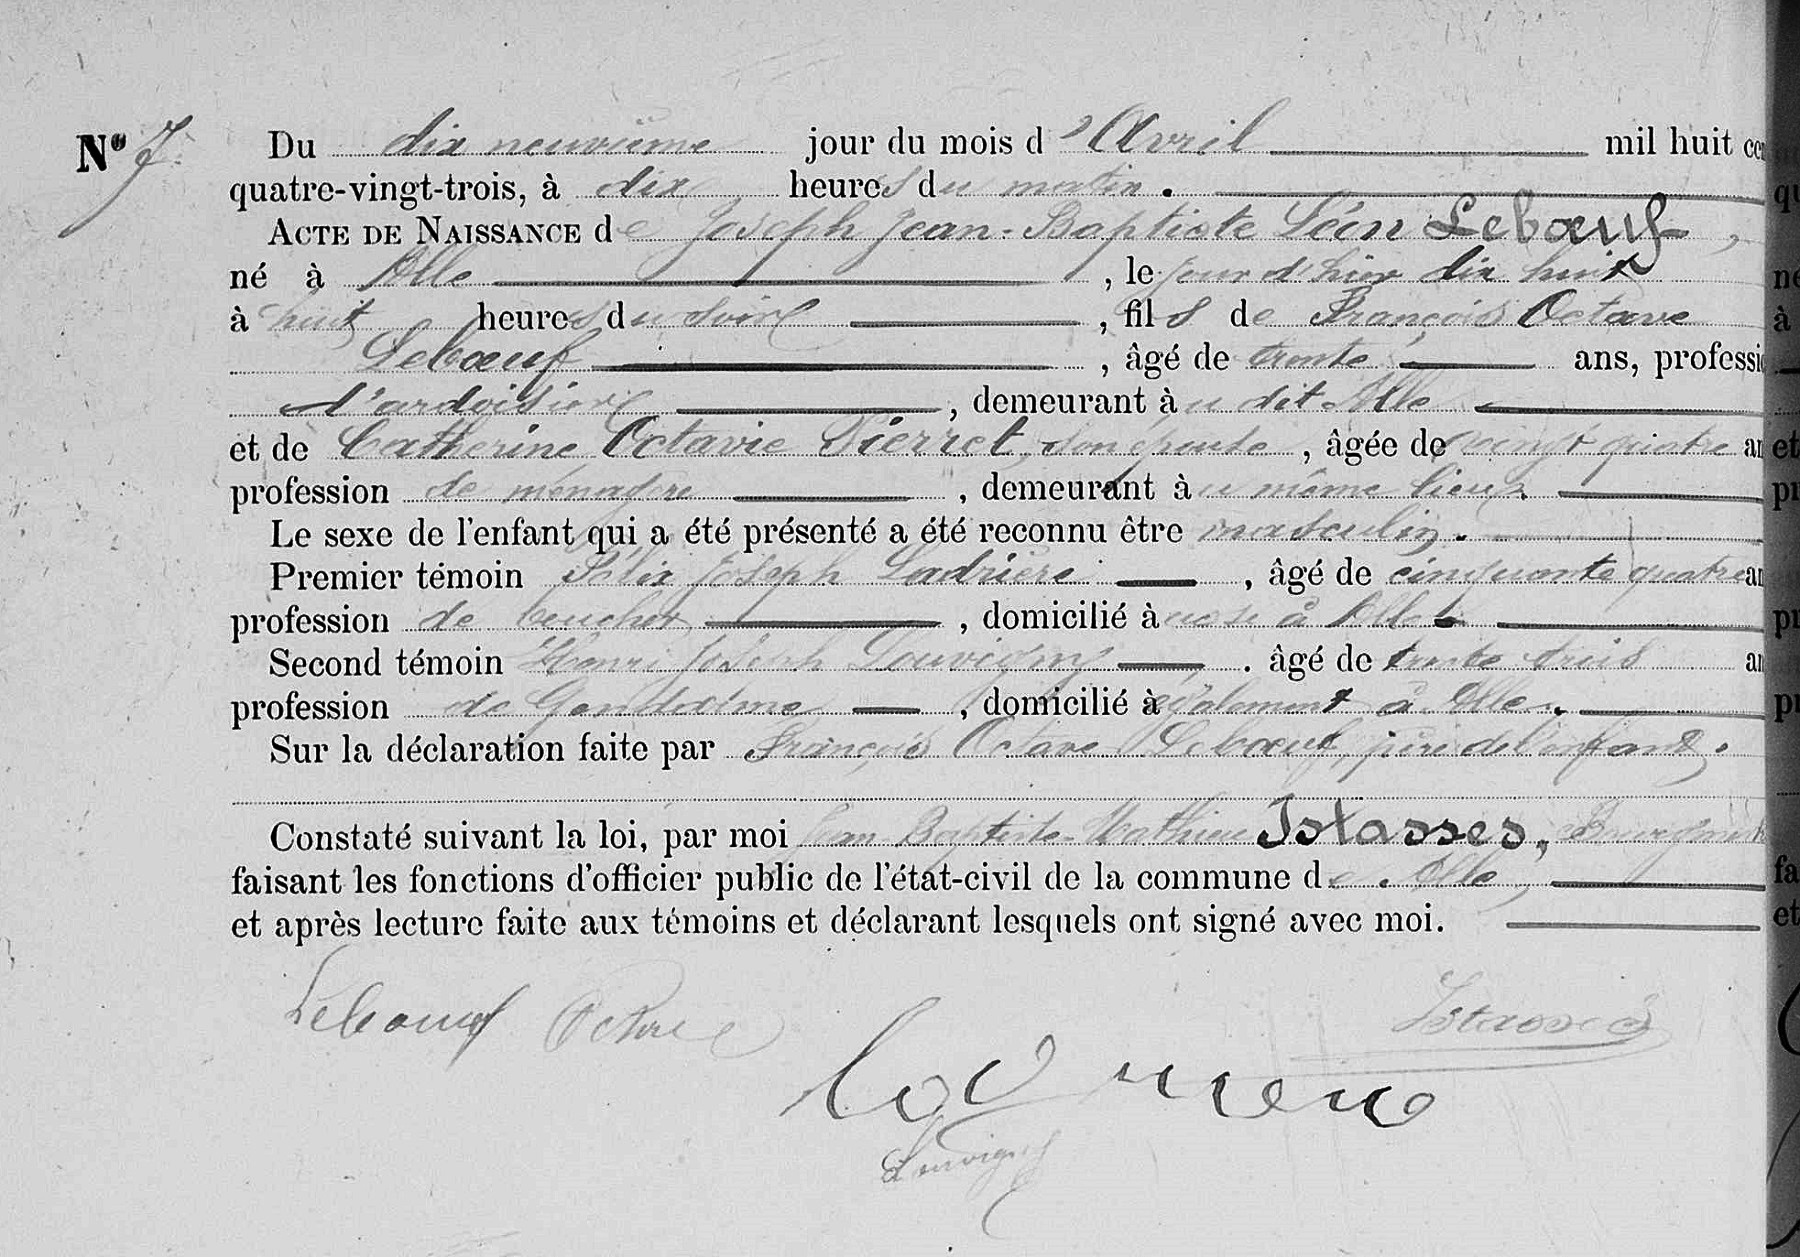 N° 7. Du dix neuvième jour du mois d'Avril mil huit cen
quatre-vingt-trois, à dix heures du matin.
ACTE DE NAISSANCE de Joseph Jean-Baptiste Léon Lebœuf,
né à Alle, le jour d'hier dix huit
à huit heures du soir, fils de François Octave
Lebœuf, âgé de trente ans, professi
d'ardoisier, demeurant au dit Alle
et de Catherine Octavie Pierret, son épouse, âgée de vingt quatre an
profession de ménagère, demeurant au même lieu.
Le sexe de l'enfant qui a été présenté a été reconnu être masculin.
Premier témoin Félix Joseph Ladrière, âgé de cinquante quatre an
profession de boucher, domicilié à Alle
Second témoin Henri Joseph Louvigny, âgé de trente trois an
profession de Gendarme, domicilié également à Alle.
Sur la déclaration faite par François Octave Lebœuf, père de l'enfant.
Constaté suivant la loi, par moi Jean-Baptiste-Mathieu Istasses, Bourgmestre
faisant les fonctions d'officier public de l'état-civil de la commune de Alle,
et après lecture faite aux témoins et déclarant lesquels ont signé avec moi.
Lebœuf Octave
Istasses
Louvigny